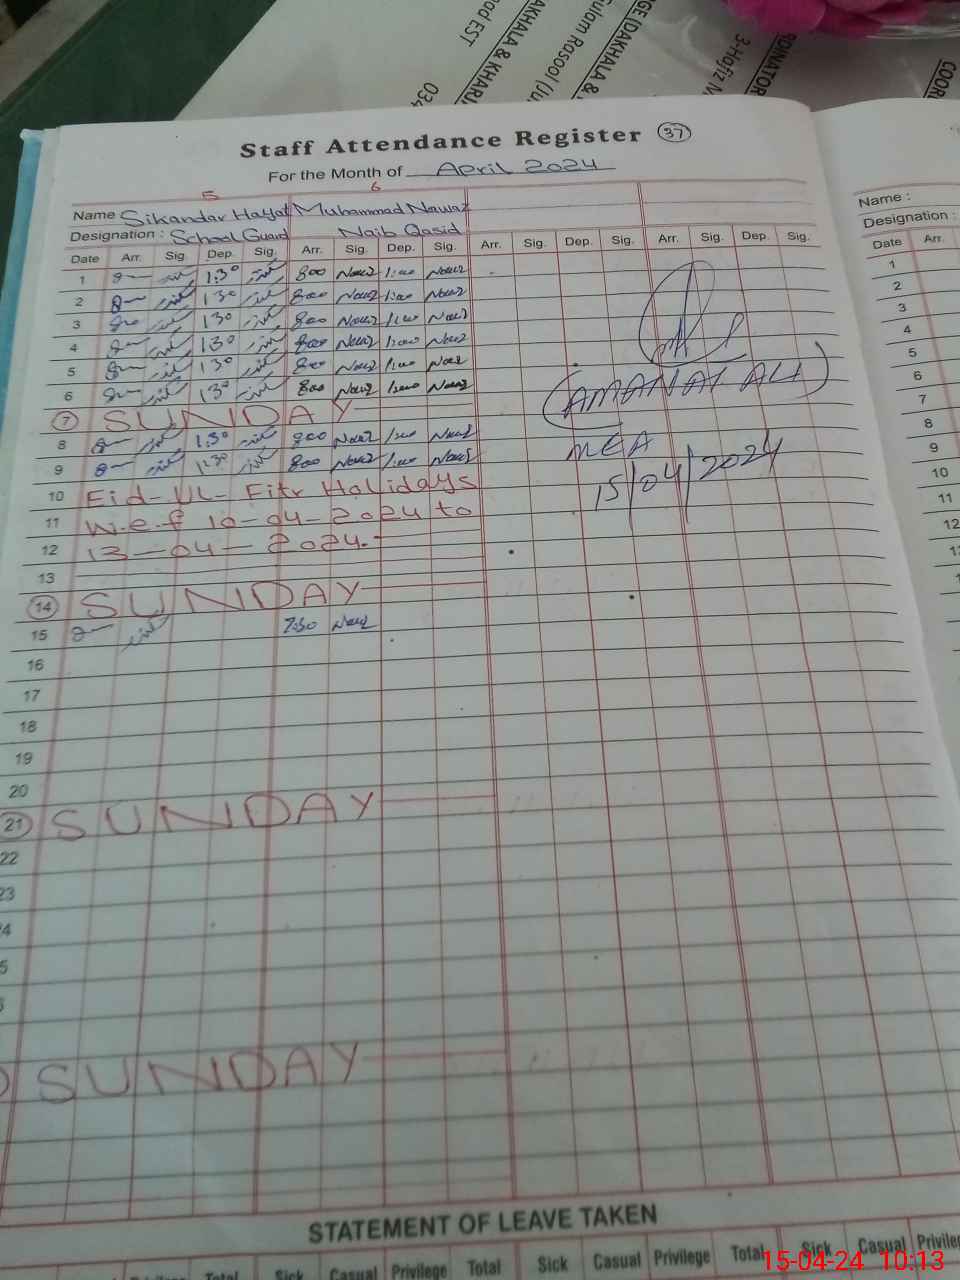 oad EST
AKHALA & KHARI
034
ulam Rasool (Ju
GE (DAKHALA &
3-Hafiz M
RDINATOR
COOR
Staff Attendance Register 37
For the Month of April 2024
5 6
Name Sikandar Hayat Muhammad Nawaz
Designation : School Guard Naib Qasid
Date Arr. Sig. Dep. Sig. Arr. Sig. Dep. Sig. Arr. Sig. Dep. Sig. Arr. Sig. Dep. Sig.
1 8 1.30 800 Nawaz 1:00 Nawaz
2 8 130 800 Nawaz 1:00 Nawaz
3 8 130 800 Nawaz 1:00 Nawaz
4 8 130 800 Nawaz 1:00 Nawaz
5 8 130 800 Nawaz 1:00 Nawaz
6 8 130 800 Nawaz 1:00 Nawaz
7 SUNDAY
8 8 1.30 800 Nawaz 1:00 Nawaz
9 8 1:30 800 Nawaz 1:00 Nawaz
10 Eid-UL-Fitr Holidays
11 w.e.f 10-04-2024 to
12 13-04-2024.
13
14 SUNDAY
15 8 7:30 Nawaz
16
17
18
19
20
21 SUNDAY
22
23
4
5
SUNDAY
(AMANAT ALI)
MEA
15/04/2024
STATEMENT OF LEAVE TAKEN
Privilege Total Sick Casual Privilege Total Sick Casual Privilege Total Sick Casual Privilege
Name :
Designation :
Date Arr.
1
2
3
4
5
6
7
8
9
10
11
12
15-04-24 10:13